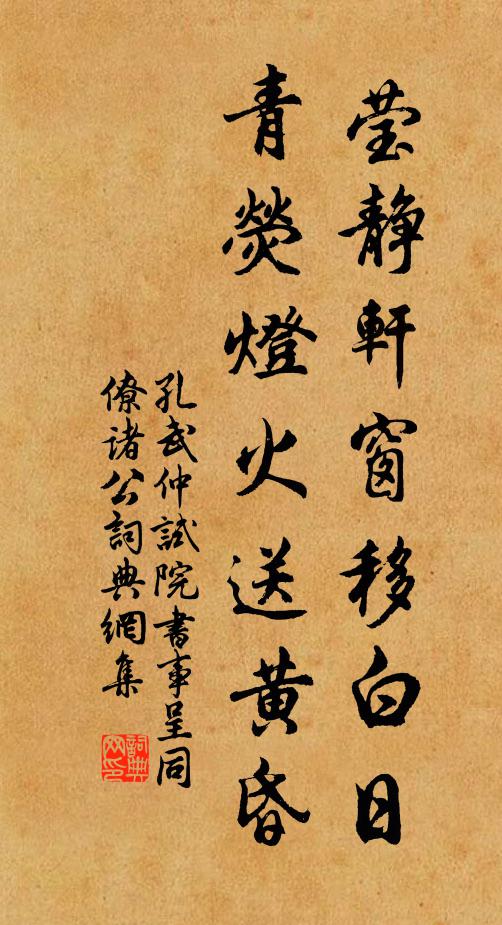 莹静軒窗移白日
青熒燈火送黄昏
孔武仲試院書事呈同
僚诸公詞典網集
詞典网印